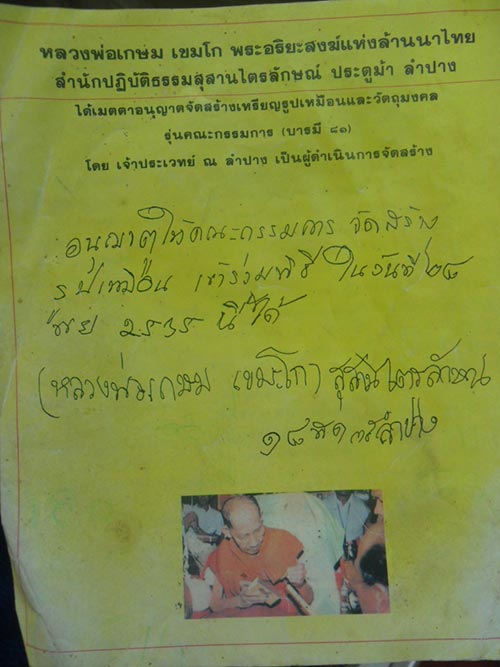 หลวงพ่อเกษม เขมโก พระอริยะสงฆ์แห่งล้านนาไทย
สำนักปฏิบัติธรรมสุสานไตรลักษณ์ ประตูม้า ลำปาง
ได้เมตตาอนุญาตจัดสร้างเหรียญรูปเหมือนและวัตถุมงคล
รุ่นคณะกรรมการ (บารมี ๘๑)
โดย เจ้าประเวทย์ ณ ลำปาง เป็นผู้ดำเนินการจัดสร้าง
ให้คณะกรรมการ จัดสร้าง
รูปเหมือน เข้าร่วมพิธี ในวันที่ ๒๘
๒๕๓๕ นี้ได้
(หลวงพ่อเกษม เขมะโก)
๑๘ ๓๕ ลำปาง